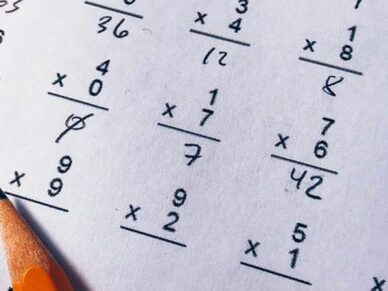 36
3
x 4
12
1
x 8
8
4
x 0
0
1
x 7
7
7
x 6
42
9
x 9
9
x 2
5
x 1
x